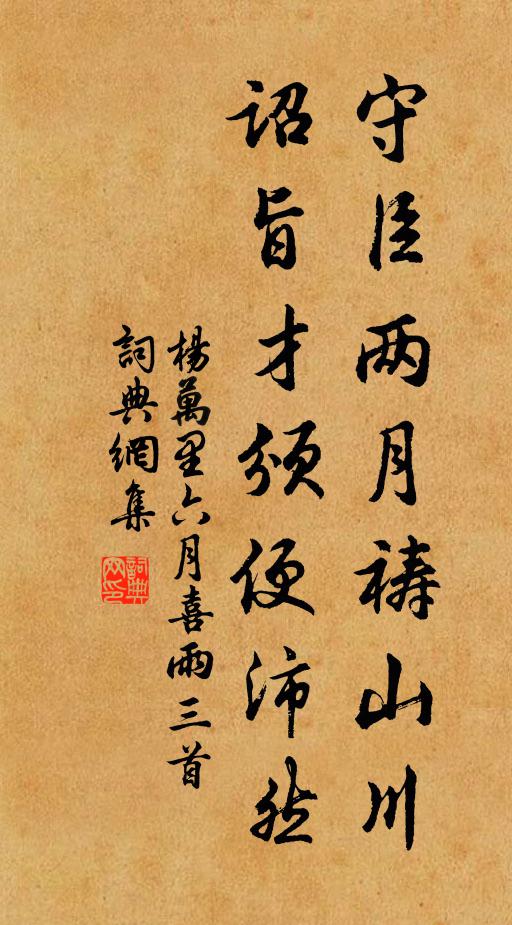 守臣两月祷山川
诏旨才颁便沛然
楊萬里六月喜雨三首
詞典網集
詞典网印